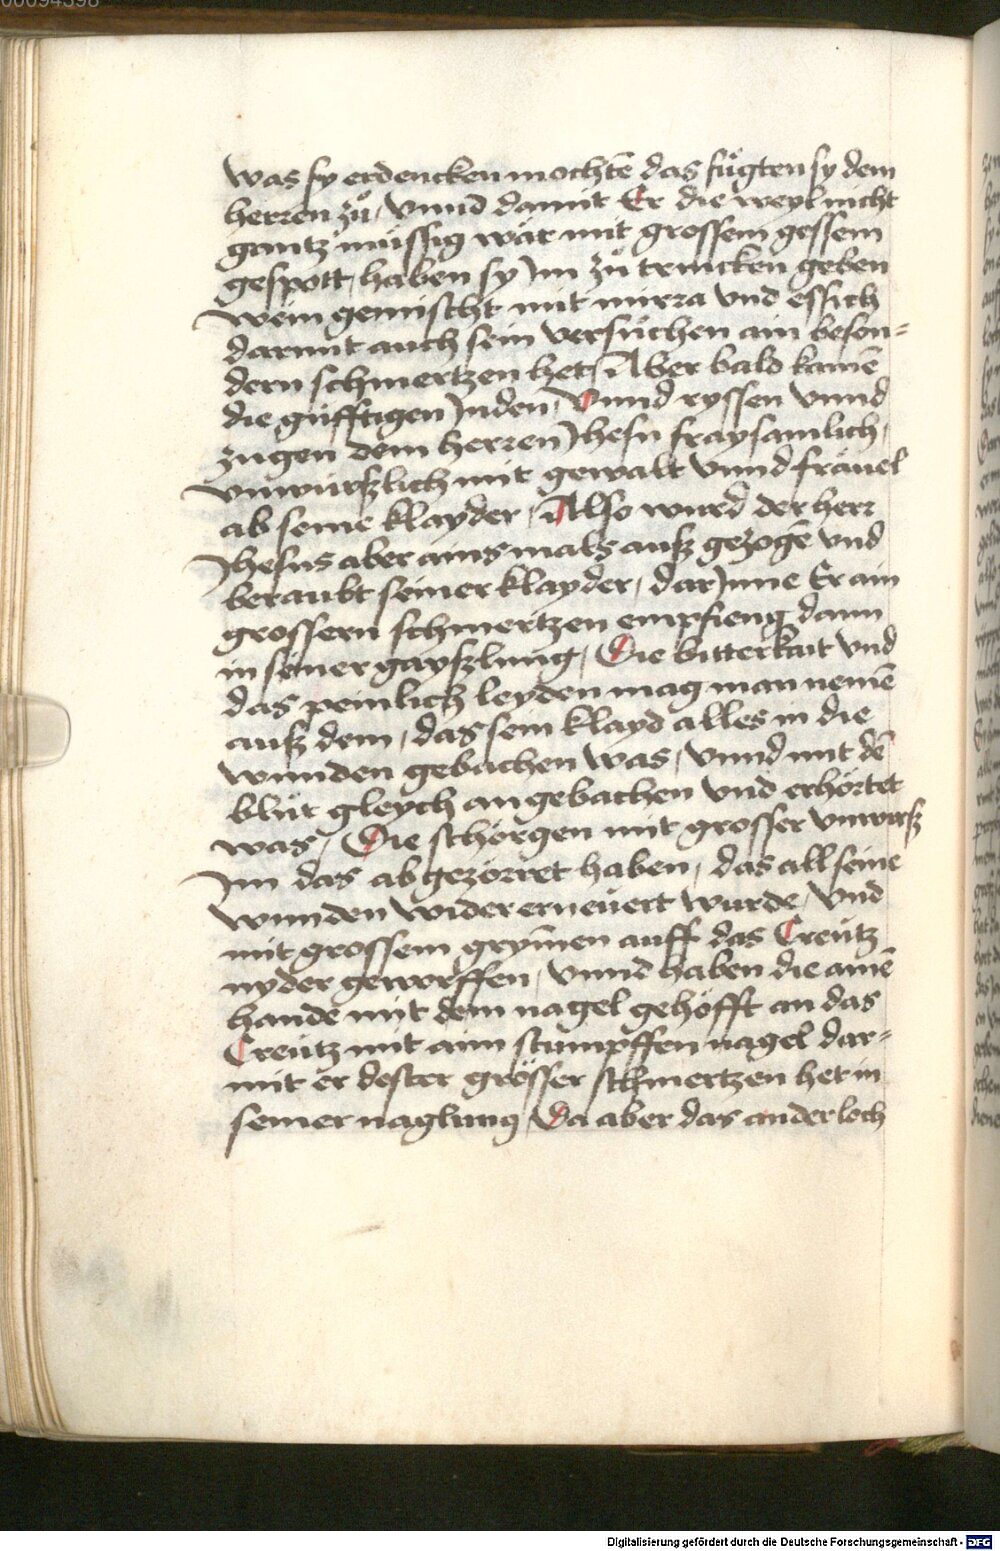 00094398
was sy erdencken mochtē das fuͤgten sy dem
herren zuͦ, Vnnd damit Er die weyl nicht
gantz müssig wär mit grossem gessem
gespött, haben sy Im zuͦ trincken geben
Wein gemischt mit mirra vnd essich
darmit auch sein versüchen ain beson=
dern schmertzen het, Aber bald kamē
die güfftigen Juden, Vnnd ryssen vnnd
zugen dem herren Jhesu fraysamlich,
vnwürßlich mit gewalt vnnd fräuel
ab seine klayder, Also wurd der herr
Jhesus aber ains mals auß gezogē vnd
beraubt seiner klayder, dar Inne Er ain
grossern schmertzen empfieng dann
in seiner gayßlung, Die bitterkait vnd
das peinlich leyden mag man nemē
auß dem, das sein klayd alles in die
wunden gebachen was, vnnd mit dē
blüt gleych angebachen vnd erhörtet
was, Die schörgen mit grosser vnwirß
Im das ab gezörret haben, das all seine
wunden wider erneüert wurde, vnd
mit grossem grym̄en auff das Creütz
nyder geworffen, vnnd haben die ainē
hande mit dem nagel gehöfft an das
Creütz mit aim stumpffen nagel dar=
mit er dester grösser schmertzen het in
seiner naglung, Da aber das ander loch
Digitalisierung gefördert durch die Deutsche Forschungsgemeinschaft - DFG